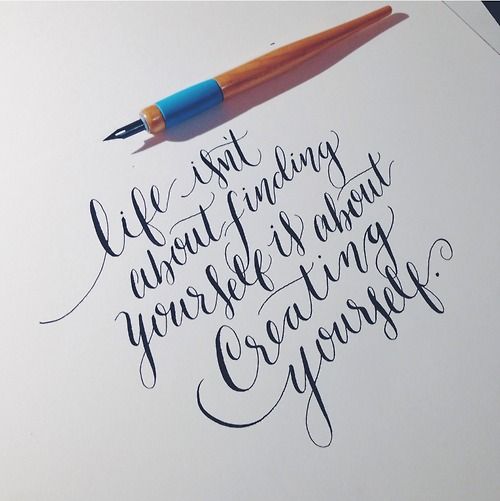 life isn't
about finding
yourself is about
Creating
yourself.